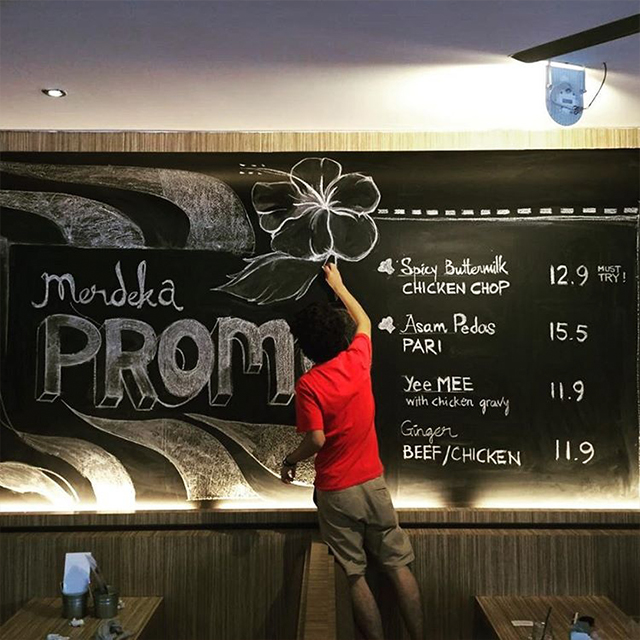 Merdeka
PROM
Spicy Buttermilk
CHICKEN CHOP
12.9
MUST
TRY!
Asam Pedas
PARI
15.5
Yee MEE
with chicken gravy
11.9
Ginger
BEEF/CHICKEN
11.9